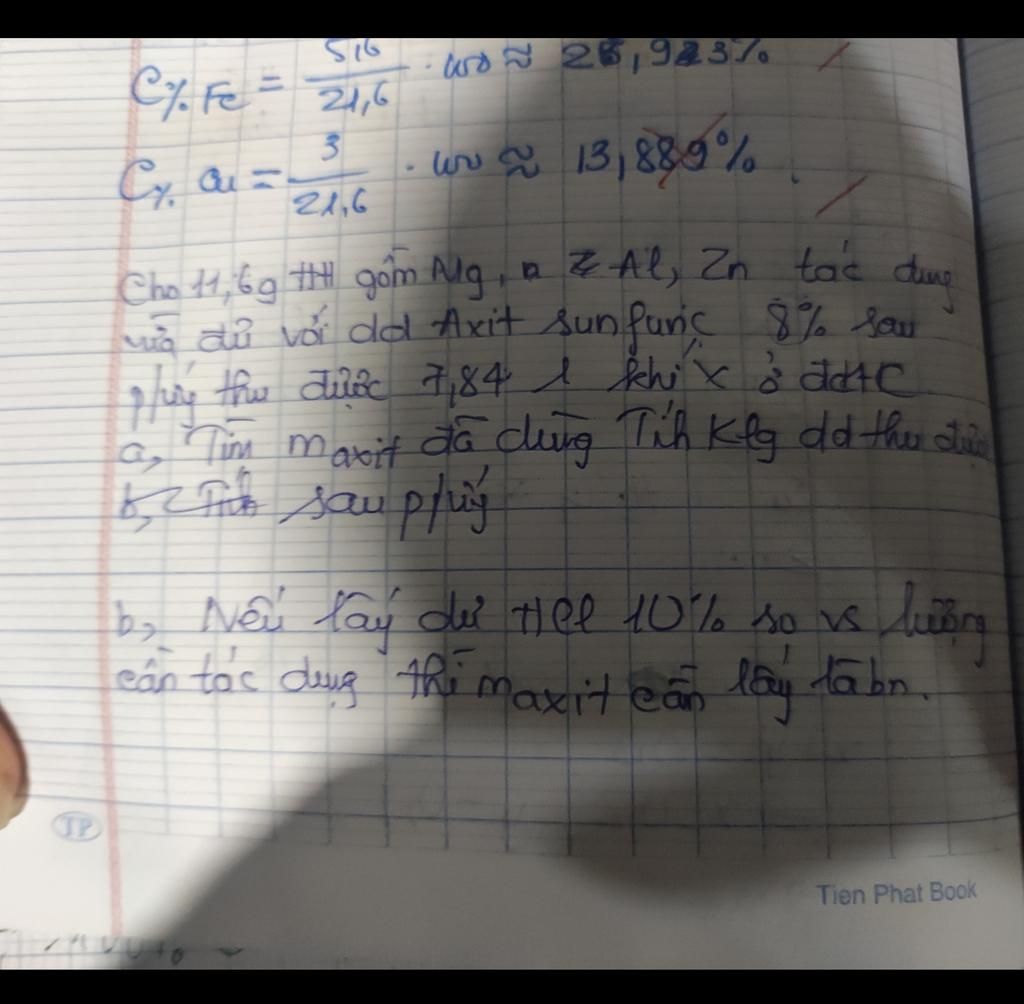 C% Fe = 5,6/21,6 . 100 ≈ 25,923%
C% Cu = 3/21,6 . 100 ≈ 13,889%.
Cho 11,6g HH gồm Mg, Al, Zn tác dụng
vừa đủ với dd Axit sunfuric 8% sau
p/ứng thu được 7,84 l khí X ở đđtC
a, Tìm maxit đã dùng Tính Klg dd thu được
b, Tính sau p/ứng
b, Nếu lấy dư HCl 10% so vs lượng
cần tác dụng thì maxit cần lấy là bn.
TP
Tien Phat Book